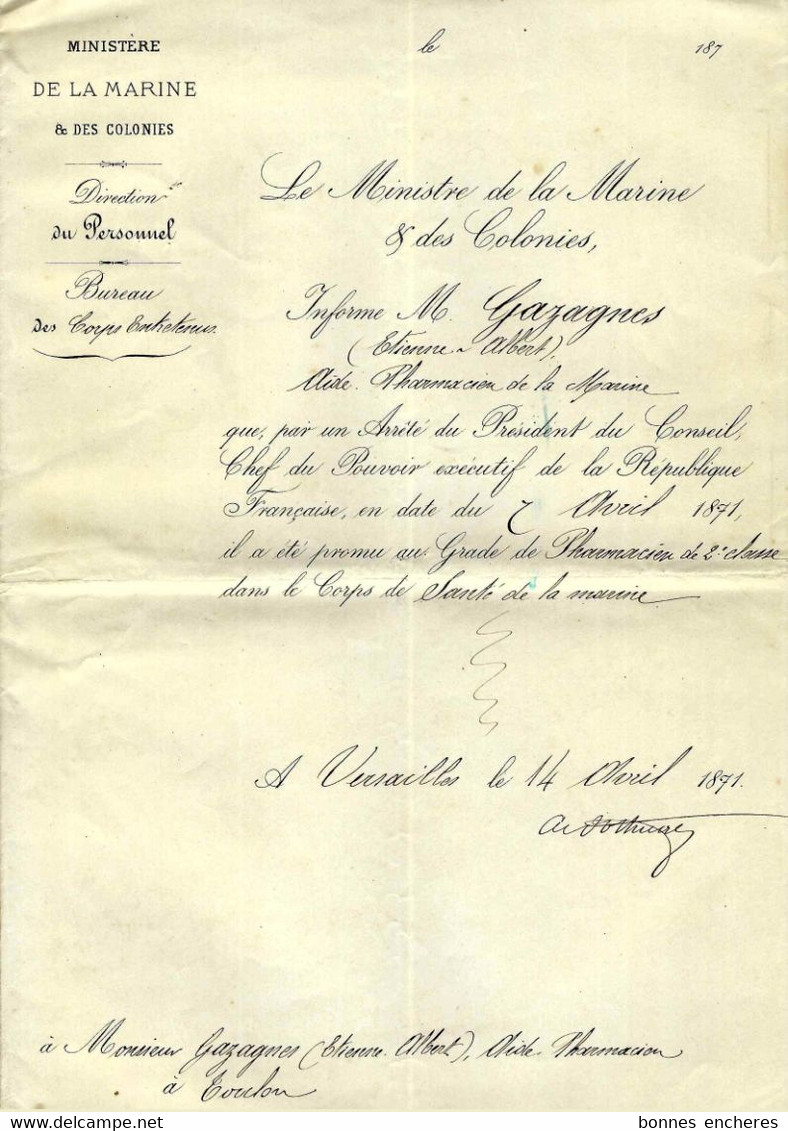 MINISTÈRE
DE LA MARINE
& DES COLONIES
Direction
du Personnel
Bureau
des Corps Entretenus
le 187
Le Ministre de la Marine
& des Colonies,
Informe M. Gazagnes
(Etienne - Albert),
Aide-Pharmacien de la Marine
que, par un Arrêté du Président du Conseil,
Chef du Pouvoir exécutif de la République
Française, en date du 7 Avril 1871,
il a été promu au Grade de Pharmacien de 2e classe
dans le Corps de Santé de la marine
A Versailles le 14 Avril 1871.
à Monsieur Gazagnes (Etienne-Albert), Aide-Pharmacien
à Toulon
bonnes encheres